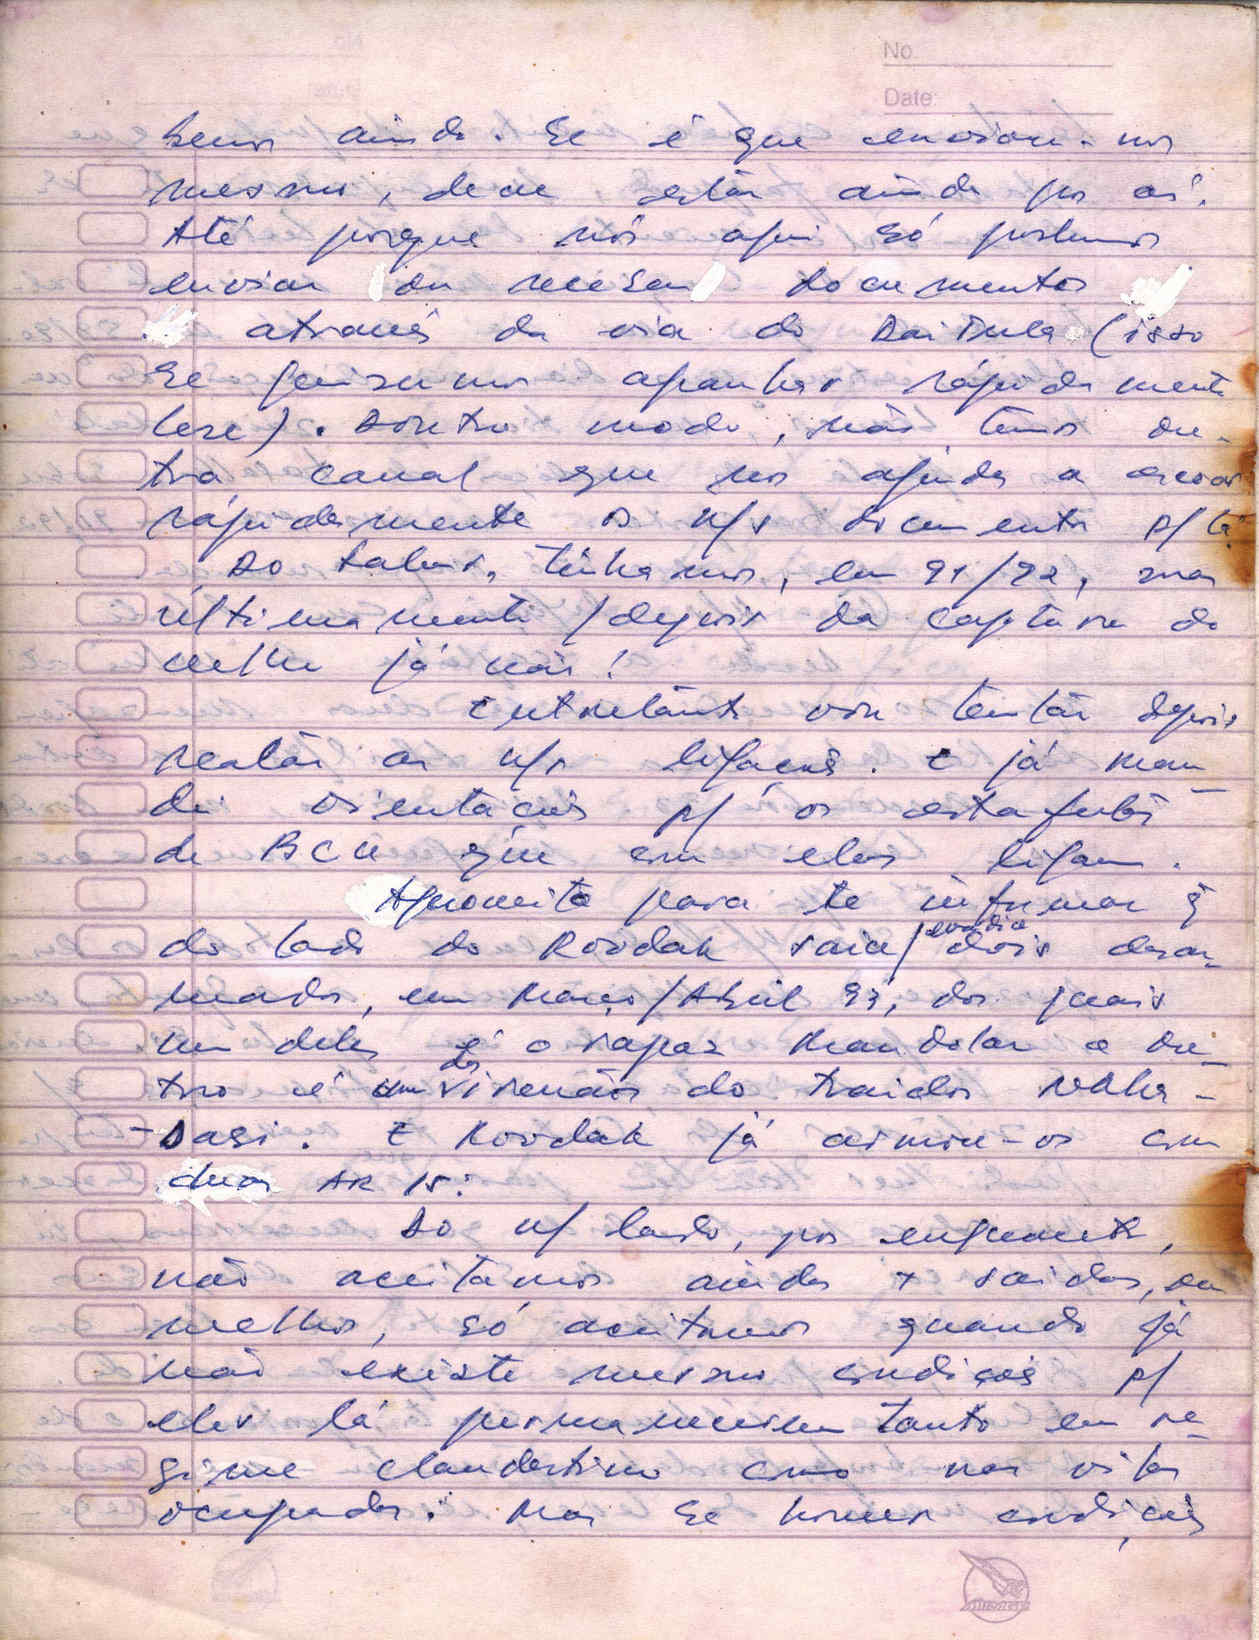 No.
Date:
bemos ainda. Se é que enviou-nos
mesmo, deve estar ainda por aí.
Até porque nós aqui só podemos
enviar ou receber documentos
através da via do (isso
se quisermos apanhar rápidamente
lere). Doutro modo, não temos ou-
tro canal que nos ajuda a escoar
rápidamente os n/s documentos p/ lá.
Ao talvez, tinhamos, em 91/92, mas
ultimamente/depois da captura do
velho já não!
Entretanto vou tentar depois
reatar as n/s ligações. E já man-
dei orientações p/ os estafetas
de BCU que com elas ligam.
Aproveito para te informar q̃
do lado do Roodak saiu/evadiu dois desar-
mados, em Março/Abril 93, dos quais
um deles é o rapaz Maudolar e ou-
tro é um irmão do traidor
E Roodak já armou-os com
duas AR 15.
Do n/ lado, por enquanto,
não aceitamos ainda + saidas, ou
melhor, só aceitamos quando já
não existe mesmo condições p/
eles lá permanecerem tanto em re-
gime clandestino como nas vilas
ocupadas. Mas se houver condições